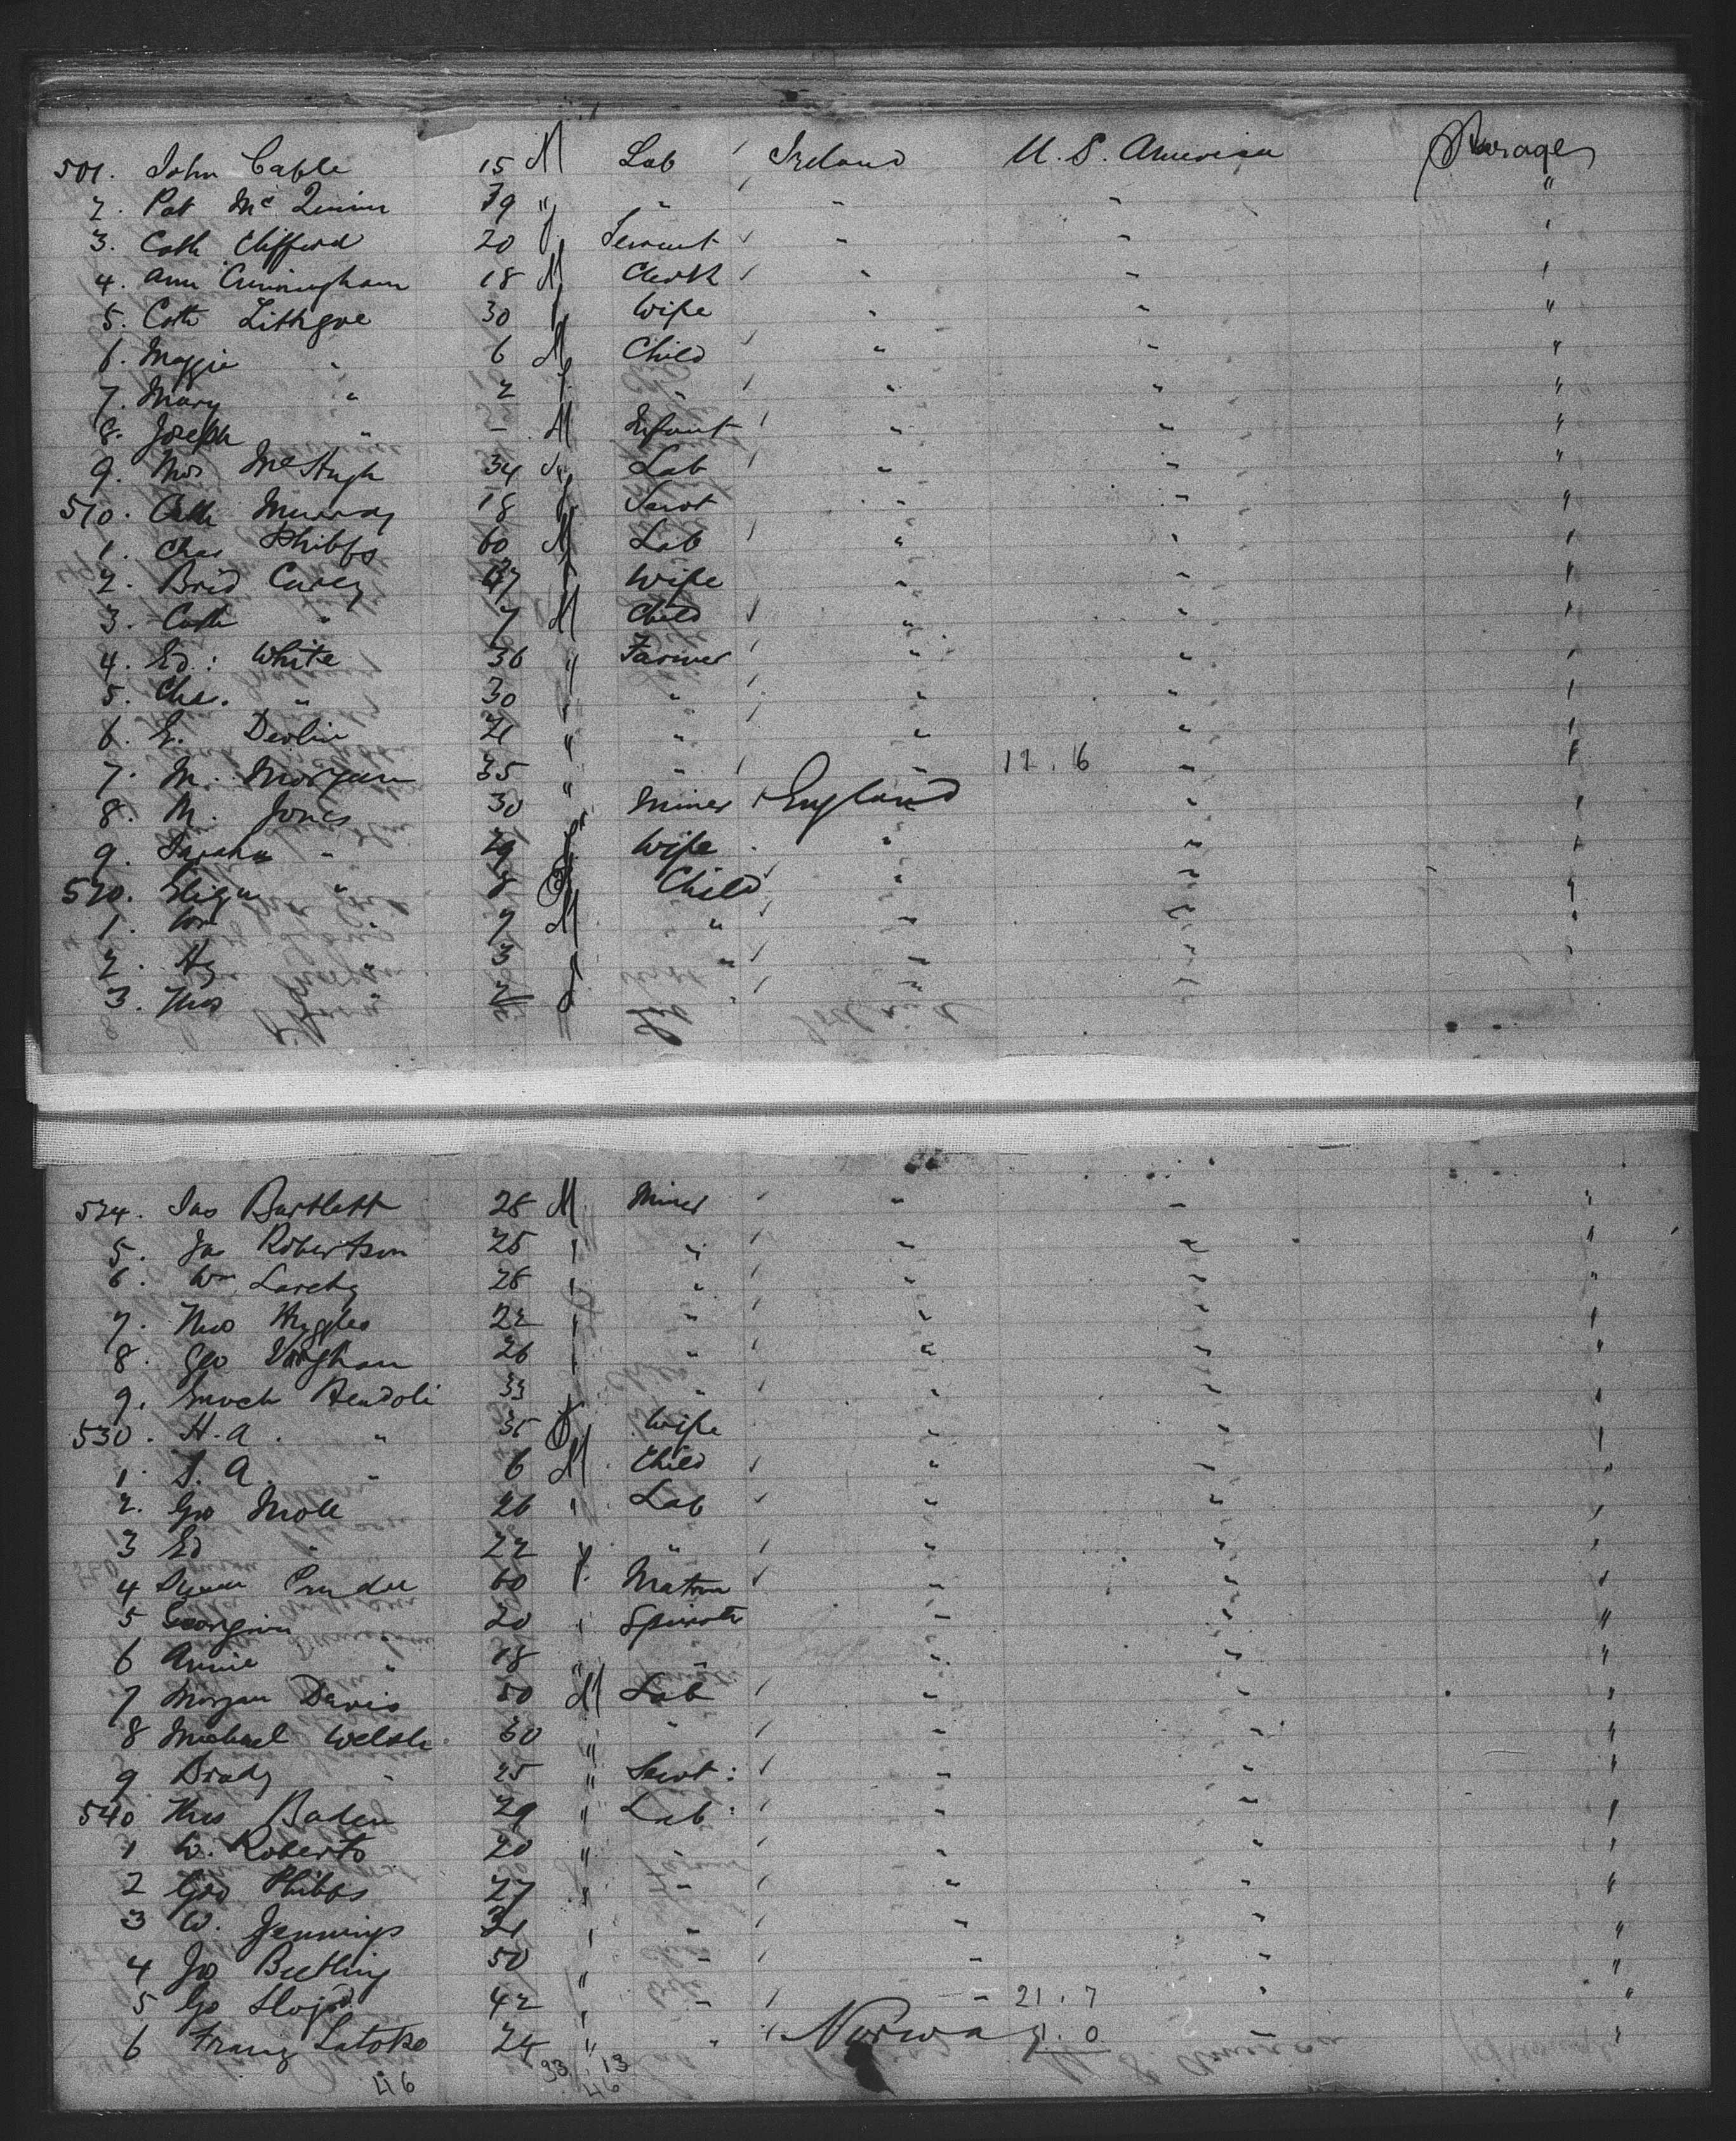 501. John Cable 15 M Lab ' Ireland U. S. America Steerage
2. Pat Mc 39 " " " " "
3. Cath Clifford 20 f Servant ✓ " " "
4. Ann Cunningham 18 M Clerk ✓ " " "
5. Cath Lithgoe 30 f Wife " " "
6. Maggie " 6 M Child ✓ " " "
7. Mary " 2 f " " " "
8. Joseph " - M Infant ' " " "
9. McHugh 34 Lab ' " " "
510. Cath Murray 18 f Servt " " "
1. Chas Phibbs 60 M Lab ' " " "
2. Brid Carey 47 f Wife " " "
3. Cath " 7 M Child ✓ " " "
4. Ed: White 36 " Farmer ' " " "
5. Chas. " 30 " " ' " " "
6. Devlin 21 " " ' " " "
7. M. Morgan 35 " " ' " 11. 6 " "
8. M. Jones 30 " Miner England " "
9. " 29 f Wife " " "
520. " 8 f Child " " "
1. Wm " 9 M " " " "
2. Hy " 3 " " " "
3. Thos " 2 " " "
524. Jas Bartlett 28 M Miner ' " " "
5. Jas Robertson 25 " " ' " " "
6. Wm 28 " " ' " " "
7. Thos 22 " " ' " " "
8. Geo Vaughan 26 " " ' " " "
9. Enoch 33 " " ' " " "
530. H. A. " 35 f Wife " " "
1. S. A. " 6 M Child ✓ " " "
2. Geo Mole 26 " Lab ✓ " " "
3 Ed " 22 " ' " " "
4 60 f. Matron ✓ " " "
5 Georgina " 20 " Spinstr " " "
6 Annie " 18 " " " " "
7 Morgan Davis 50 M Lab ' " " "
8 Michael Welsh 30 " " ' " " "
9 Brady " 25 " Servt: ✓ " " "
540 Thos Baden 29 " Lab: ' " " "
1 W. Roberts 20 " " ' " " "
2 Geo Phibbs 27 " " ' " " "
3 W. Jennings 31 " " ' " " "
4 Jas 50 " " ' " " "
5 Geo 42 " " ' " 21. 7 " "
6 Franz 24 " " Norway 1. 0 " "
46 33 13
46